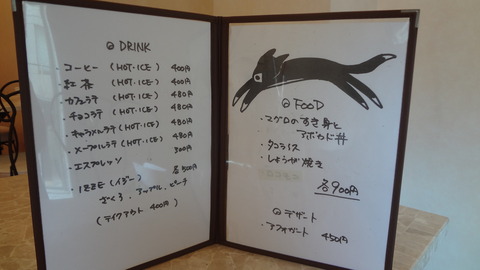 ◎ DRINK
・コーヒー (HOT・ICE) 400円
・紅茶 (HOT・ICE) 400円
・カフェラテ (HOT・ICE) 480円
・チョコラテ (HOT・ICE) 480円
・キャラメルラテ (HOT・ICE) 480円
・メープルラテ (HOT・ICE) 480円
・エスプレッソ 300円
・IZZE (イジー) 各500円
ざくろ、アップル、ピーチ
(テイクアウト 400円)
◎ FOOD
・マグロのすき身と
アボカド丼
・タコライス
・しょうが焼き
各900円
◎ デザート
・アフォガート 450円